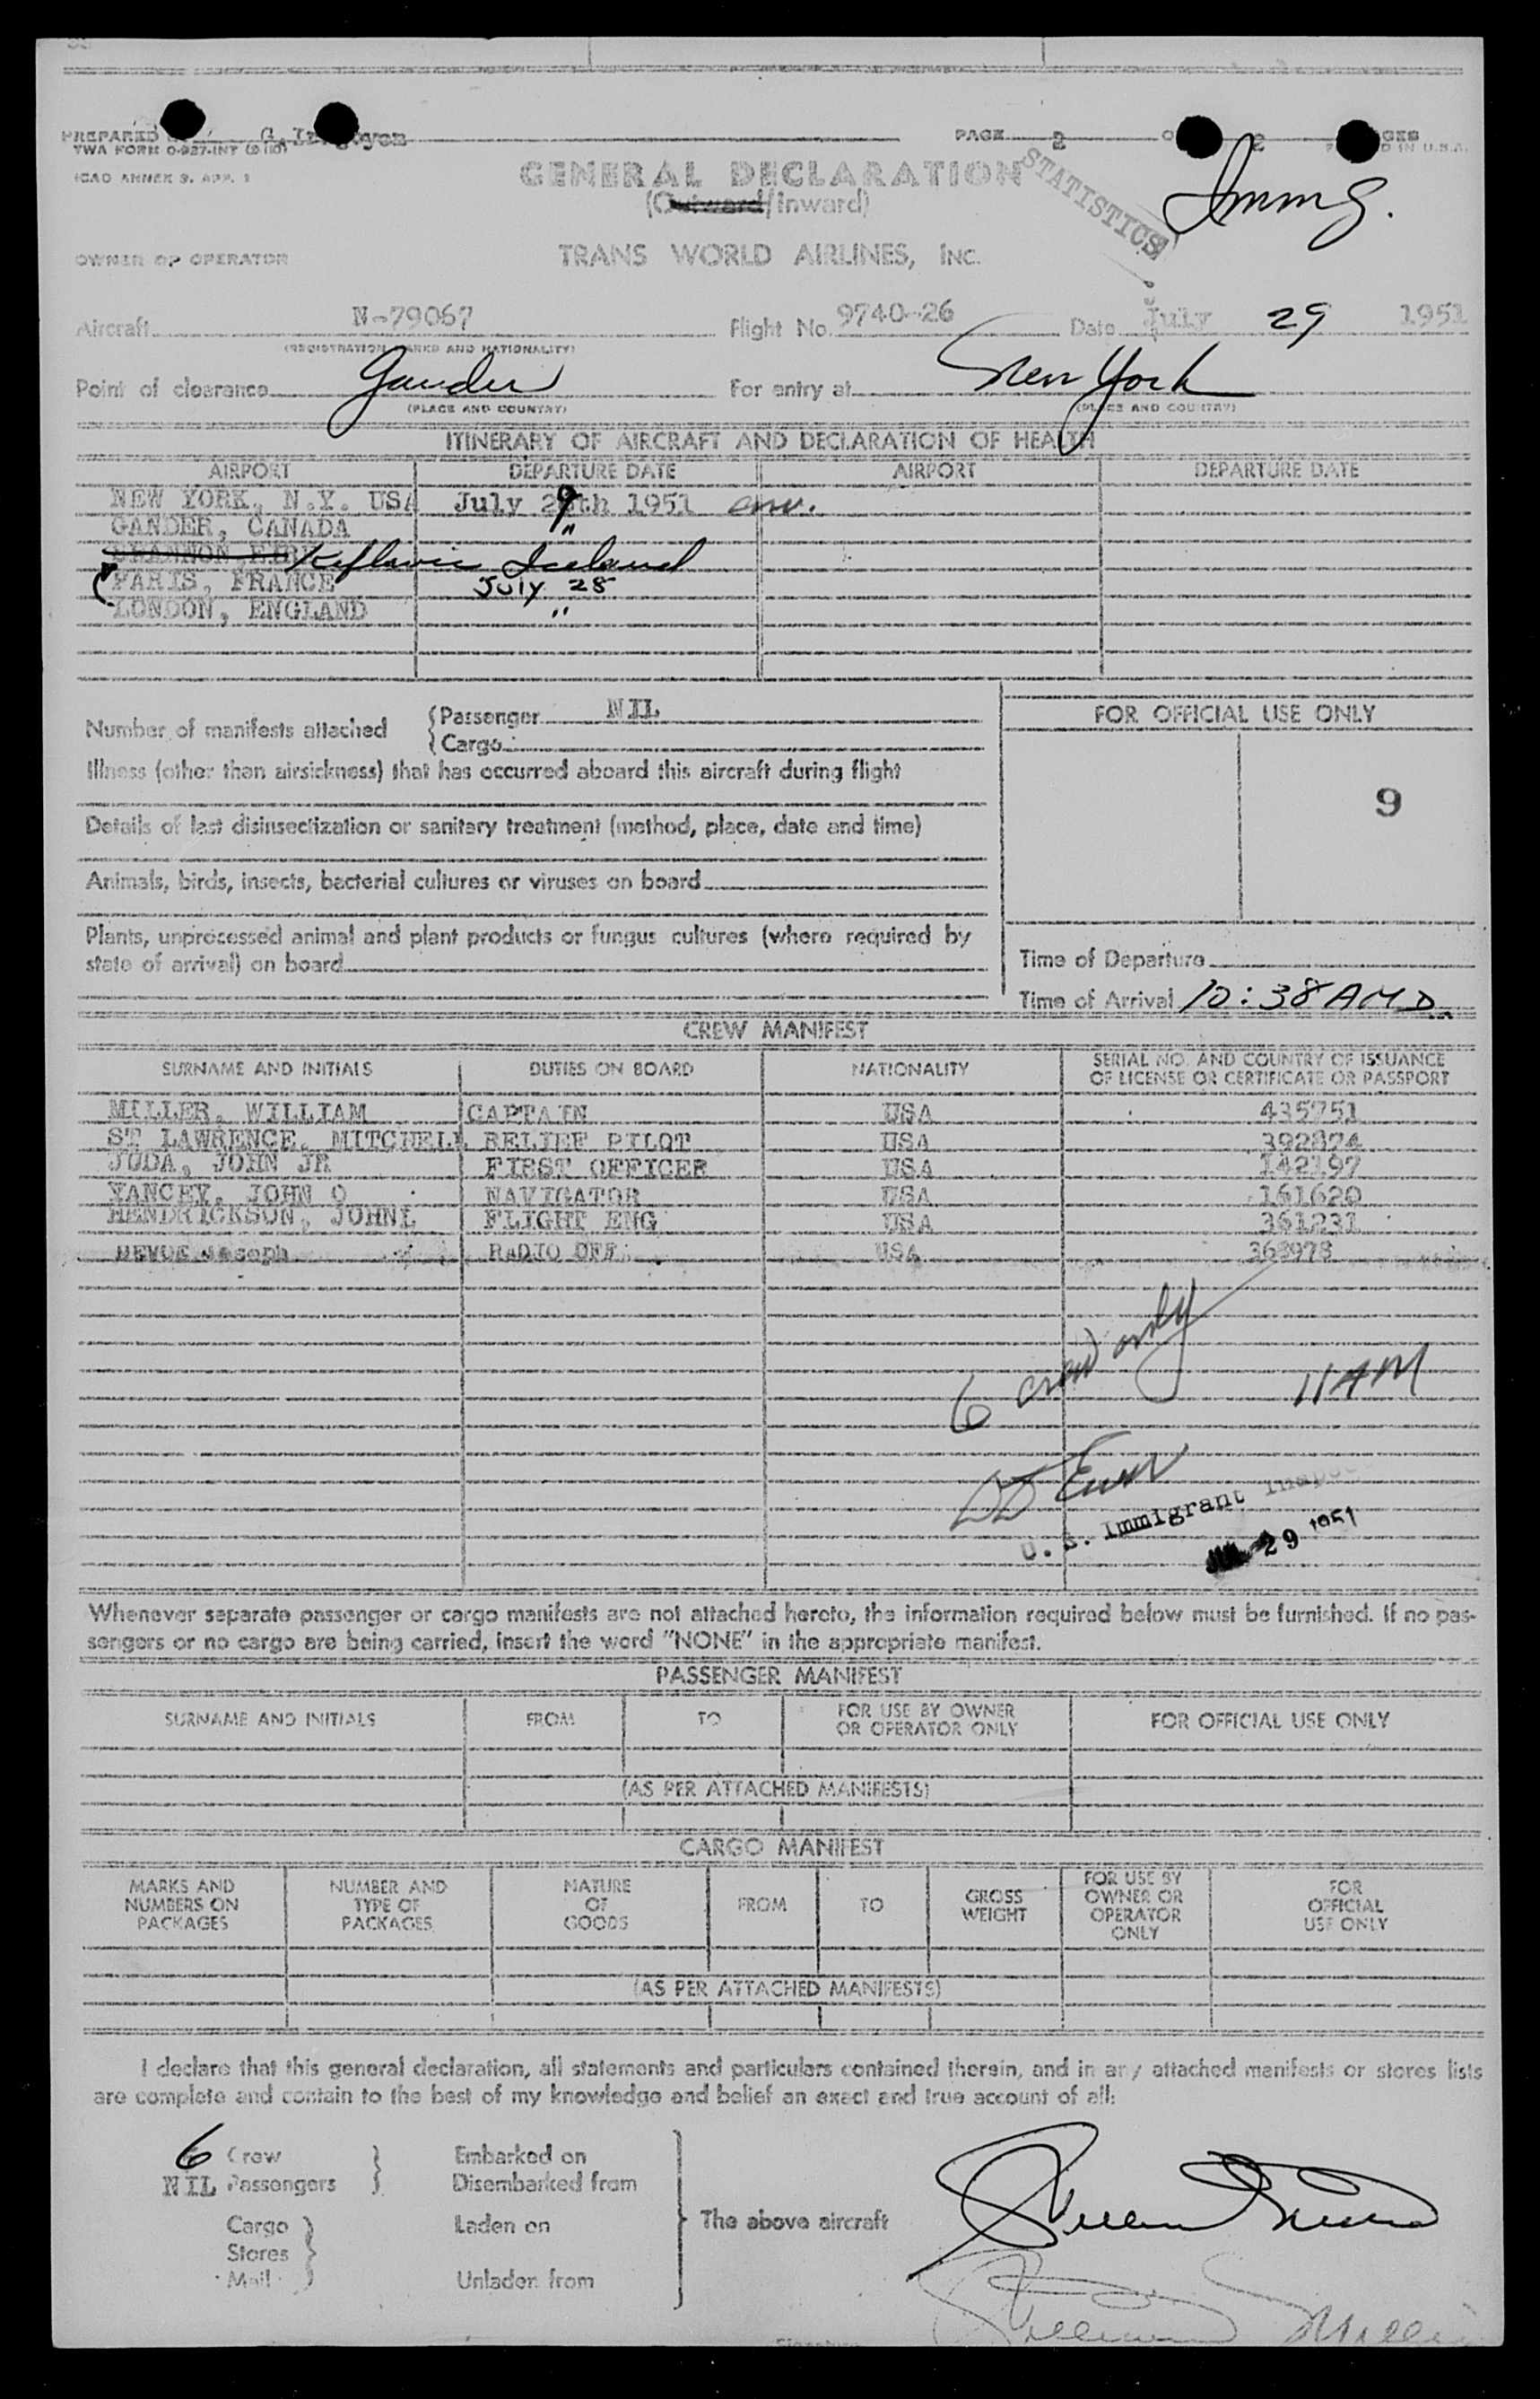 PREPARED
PAGE 2 2
TWA FORM O-927-INT
ICAO ANNEX 9, APP. 1
GENERAL DECLARATION
STATISTICS
Immg.
(Outward/Inward)
OWNER OR OPERATOR TRANS WORLD AIRLINES, INC.
Aircraft N-79067 Flight No. 9740-26 Date July 29 1951
(REGISTRATION MARKS AND NATIONALITY)
Point of clearance Gander For entry at New York
(PLACE AND COUNTRY) (PLACE AND COUNTRY)
ITINERARY OF AIRCRAFT AND DECLARATION OF HEALTH
AIRPORT DEPARTURE DATE AIRPORT DEPARTURE DATE
NEW YORK, N.Y. USA July 29th 1951 arr.
GANDER, CANADA "
SHANNON, EIRE Keflavic Iceland
PARIS, FRANCE July 28
LONDON, ENGLAND "
Number of manifests attached {Passenger NIL
{Cargo
FOR OFFICIAL USE ONLY
Illness (other than airsickness) that has occurred aboard this aircraft during flight
9
Details of last disinsectization or sanitary treatment (method, place, date and time)
Animals, birds, insects, bacterial cultures or viruses on board
Plants, unprocessed animal and plant products or fungus cultures (where required by
state of arrival) on board
Time of Departure
Time of Arrival 10:38 AMD
CREW MANIFEST
SURNAME AND INITIALS DUTIES ON BOARD NATIONALITY SERIAL NO. AND COUNTRY OF ISSUANCE
OF LICENSE OR CERTIFICATE OR PASSPORT
MILLER, WILLIAM CAPTAIN USA 435751
ST LAWRENCE, MITCHELL RELIEF PILOT USA 392874
JUDA, JOHN JR FIRST OFFICER USA 142197
YANCEY, JOHN O NAVIGATOR USA 161620
HENDRICKSON, JOHNL FLIGHT ENG USA 361231
DEVOE Joseph RADIO OFF. USA 362978
6 crew only
11 AM
U. S. Immigrant Inspec
JUL 29 1951
Whenever separate passenger or cargo manifests are not attached hereto, the information required below must be furnished. If no pas-
sengers or no cargo are being carried, insert the word "NONE" in the appropriate manifest.
PASSENGER MANIFEST
SURNAME AND INITIALS FROM TO FOR USE BY OWNER
OR OPERATOR ONLY FOR OFFICIAL USE ONLY
(AS PER ATTACHED MANIFESTS)
CARGO MANIFEST
MARKS AND
NUMBERS ON
PACKAGES NUMBER AND
TYPE OF
PACKAGES NATURE
OF
GOODS FROM TO GROSS
WEIGHT FOR USE BY
OWNER OR
OPERATOR
ONLY FOR
OFFICIAL
USE ONLY
(AS PER ATTACHED MANIFESTS)
I declare that this general declaration, all statements and particulars contained therein, and in any attached manifests or stores lists
are complete and contain to the best of my knowledge and belief an exact and true account of all:
6 Crew } Embarked on
NIL Passengers } Disembarked from
Cargo } Laden on The above aircraft
Stores
Mail } Unladen from
William Miller
Signature